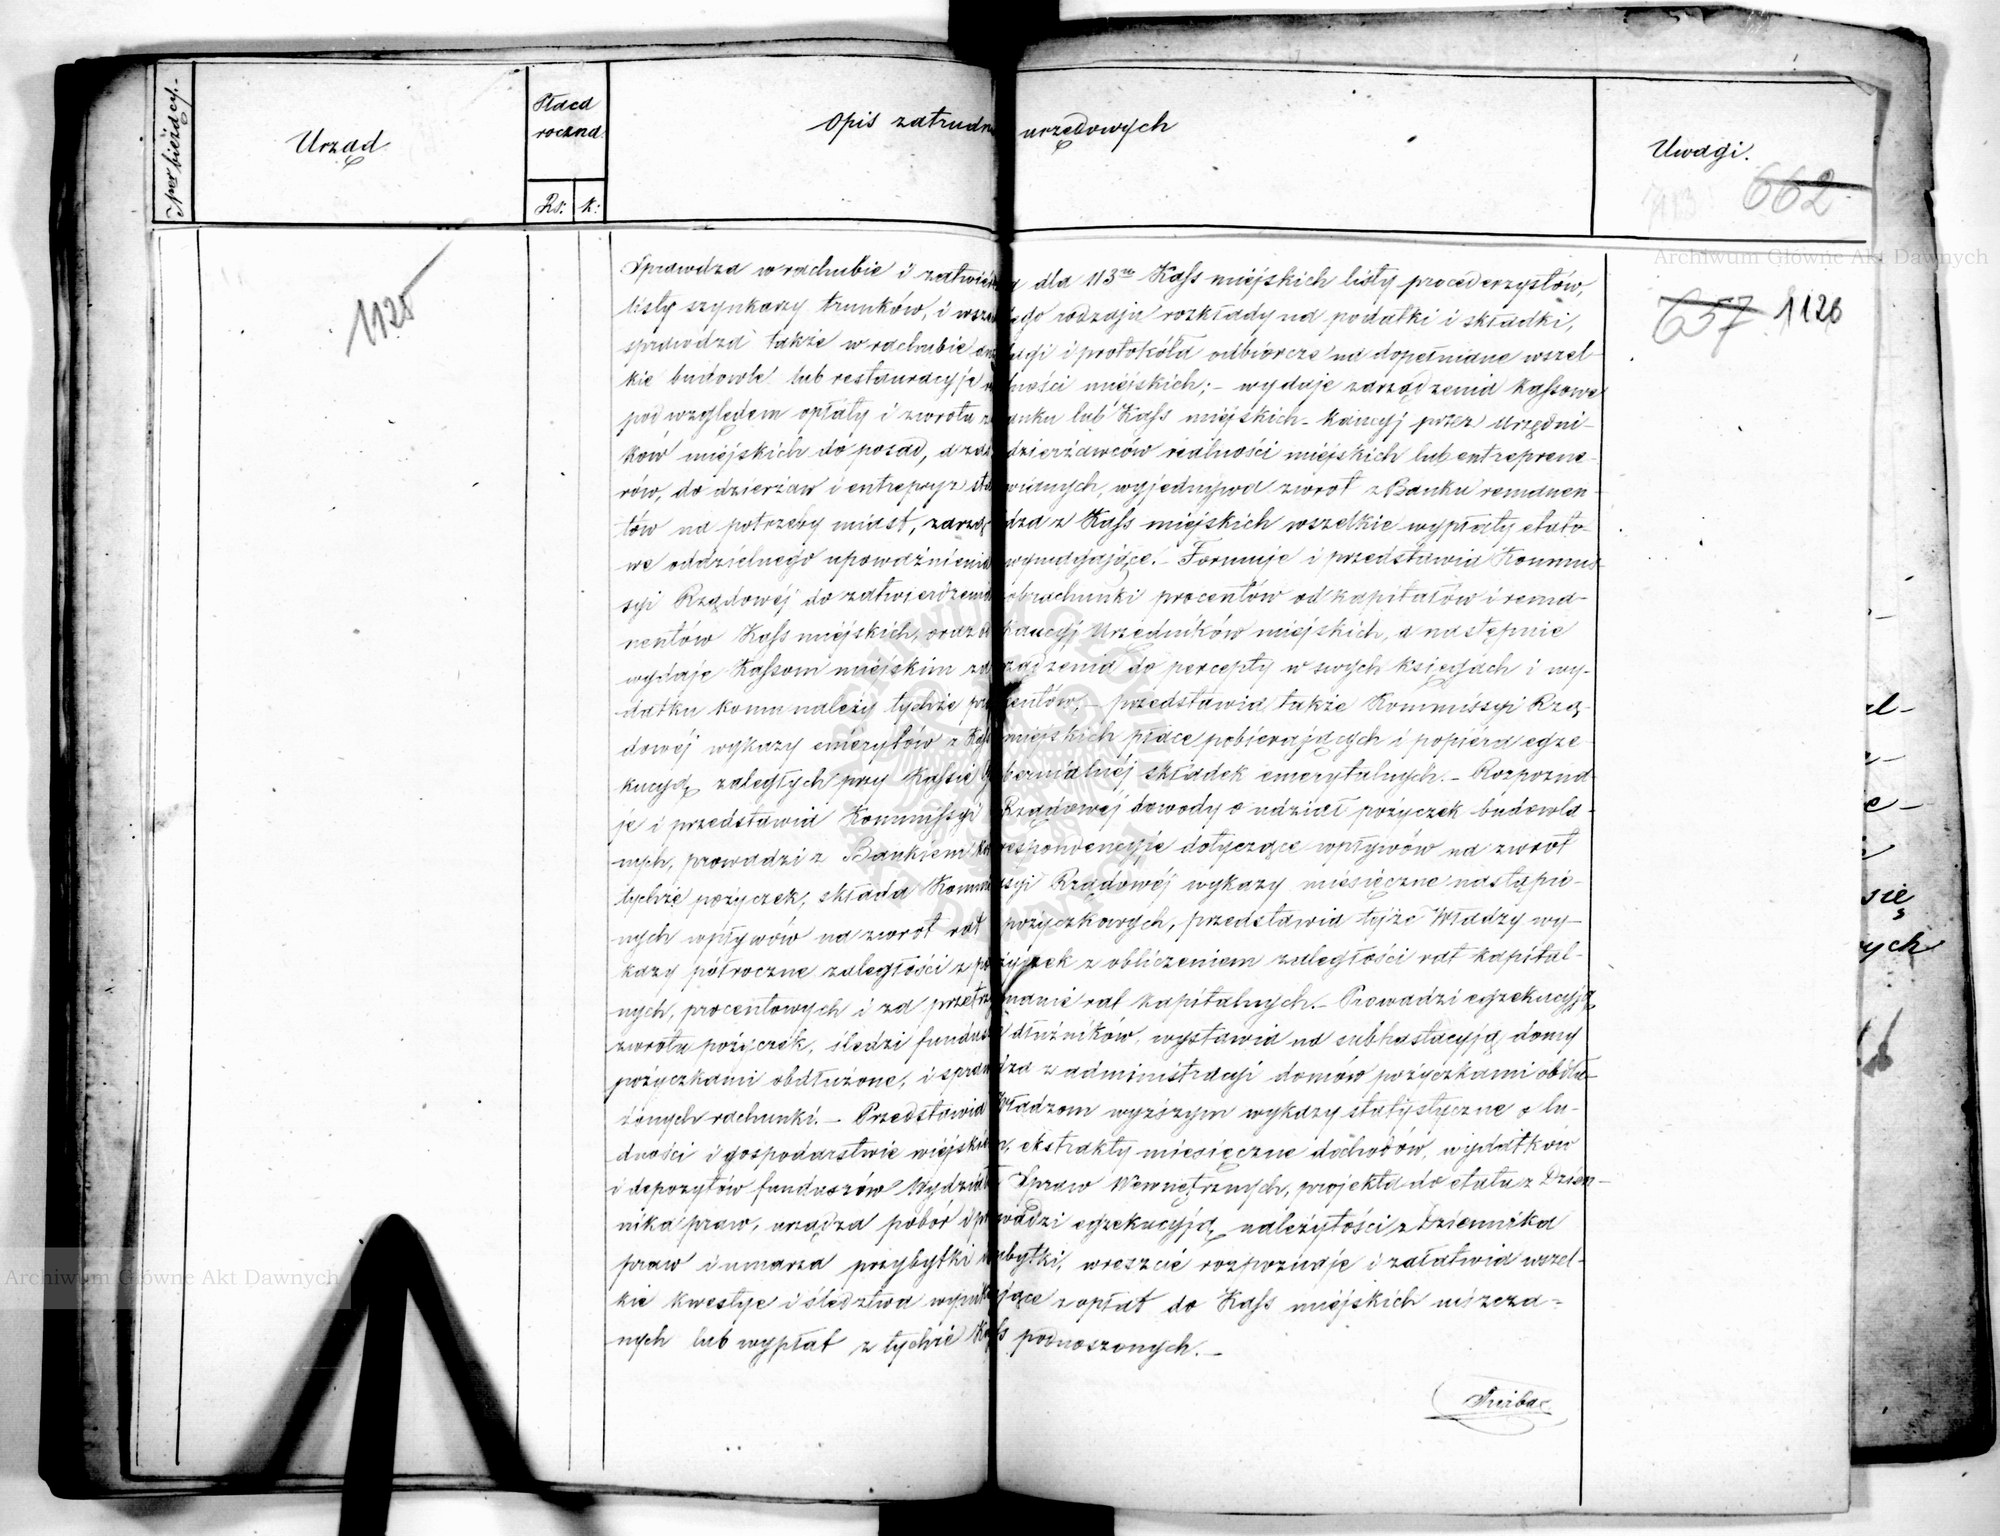 Nr bieżący.
Urząd
Płaca
roczna
Rs: k:
Opis zatrudn urzędowych
Uwagi.
662
1125
657 1126
Sprawdza w rachubie i zatwier y dla 113ch Kass miejskich listy procederzystów,
listy szynkarzy trunków, i wsze kiego rodzaju rozkłady na podatki i składki,
sprawdza także w rachubie an lagi i protokóła odbiorcze na dopełniane wszel-
kie budowle lub restauracyje r lności miejskich; - wydaje zarządzenia kassowe
pod względem opłaty i zwrotu z banku lub Kass miejskich - kaucyj przez Urzędni-
ków miejskich do posad, a zaś dzierżawców realności miejskich lub entreprene-
rów, do dzierżaw i entrepryz sta wianych, wyjednywa zwrot z Banku remanen-
tów na potrzeby miast, zarzą dza z Kass miejskich wszelkie wypłaty etato-
we oddzielnego upoważnienia wymagające. - Formuje i przedstawia Kommis
syi Rządowéj do zatwierdzenia obrachunki procentów od kapitałów i rema-
nentów Kass miejskich, oraz od kaucyj Urzędników miejskich, a następnie
wydaje Kassom miejskim za rządzenia do percepty w swych księgach i wy-
datku komu należy tychże pro centów, - przedstawia także Kommissyi Rzą-
dowéj wykazy emerytów z Kass miejskich płace pobierających i popiera egze-
kucyą zaległych przy Kassie Gu bernialnéj składek emerytalnych. - Rozpozna-
je i przedstawia Kommissyi Rządowéj dowody o udział pożyczek budowla-
nych, prowadzi z Bankiem ko respondencyje dotyczące wpływów na zwrot
tychże pożyczek, składa Kommis syi Rządowéj wykazy miesięczne nastąpio-
nych wpływów na zwrot rat pożyczkowych, przedstawia tejże Władzy wy-
kazy półroczne zaległości z po życzek z obliczeniem zaległości rat kapital-
nych, procentowych i za przetrzy manie rat kapitalnych. - Prowadzi egzekucyją
zwrotu pożyczek, śledzi fundusz dłużników, wystawia na subhastacyją domy
pożyczkami obdłużone, i spraw dza z administracyi domów pożyczkami obdłu-
żonych rachunki. - Przedstawia Władzom wyższym wykazy statystyczne o lu-
dności i gospodarstwie wiejskiem, ekstrakty miesięczne dochodów, wydatków
i depozytów funduszów Wydziału Spraw Wewnętrznych, projekta do etatu z Dzien-
nika praw, urządza pobór i pro wadzi egzekucyją należytości z Dziennika
praw i umarza przybytki i ubytki, wreszcie rozpoznaje i załatwia wszel-
kie kwestye i śledztwa wynika jące z opłat do Kass miejskich uiszcza-
nych lub wypłat z tychże Kass podnoszonych. -
al-
e-
się
ych
Archiwum Główne Akt Dawnych
Archiwum Główne Akt Dawnych